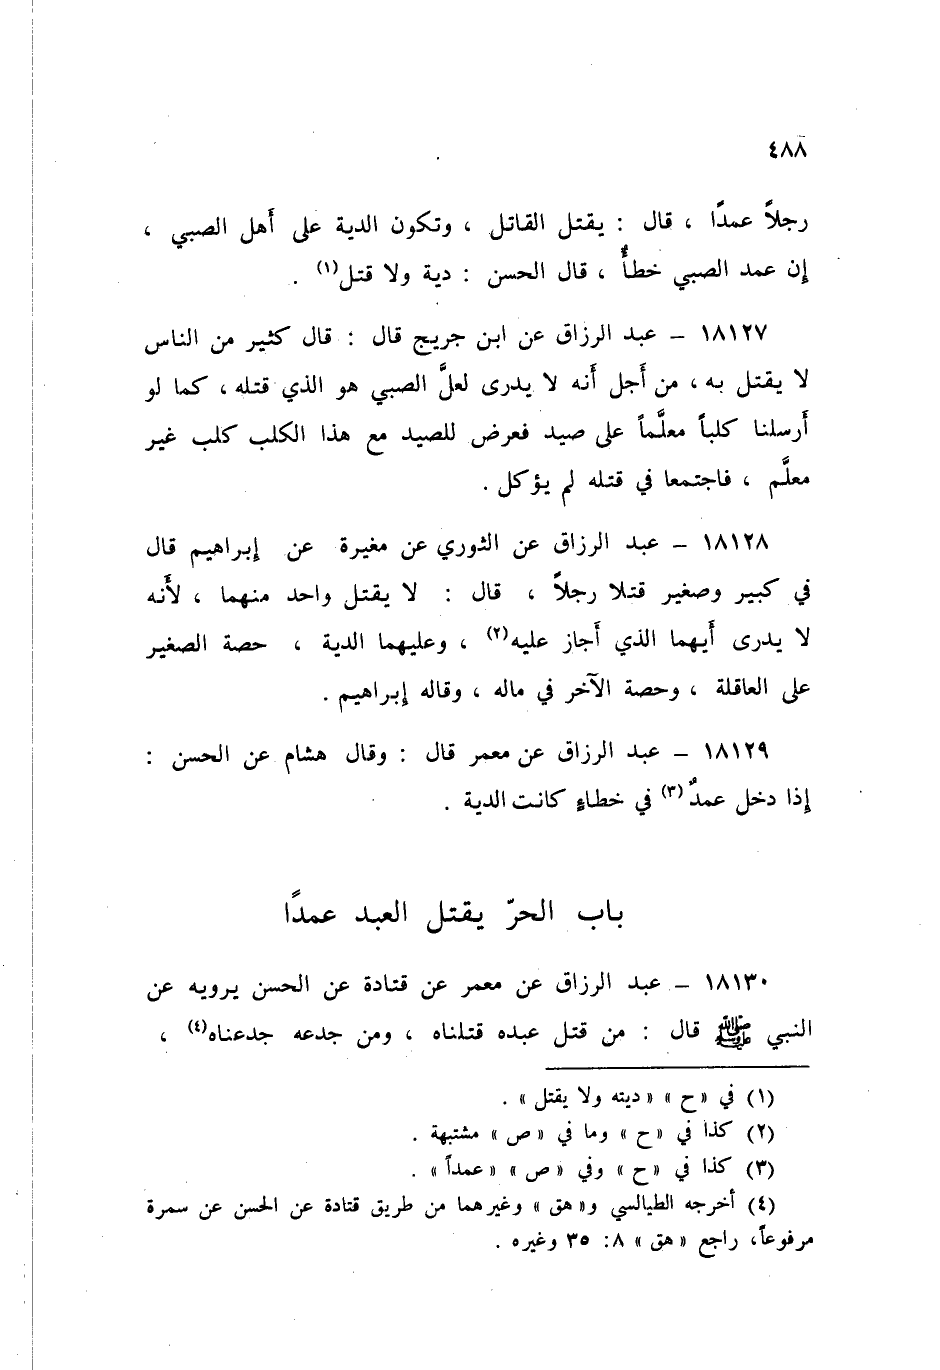 ٤٨٨
رجلاً عمدًا ، قال : يقتل القاتل ، وتكون الدية على أهل الصبي ،
إن عمد الصبي خطأٌ ، قال الحسن : دية ولا قتل(١) .
١٨١٢٧ – عبد الرزاق عن ابن جريج قال : قال كثير من الناس
لا يقتل به ، من أجل أنه لا يدرى لعلَّ الصبي هو الذي قتله ، كما لو
أرسلنا كلباً معلَّماً على صيد فعرض للصيد مع هذا الكلب كلب غير
معلَّم ، فاجتمعا في قتله لم يؤكل .
١٨١٢٨ – عبد الرزاق عن الثوري عن مغيرة عن إبراهيم قال
في كبير وصغير قتلا رجلاً ، قال : لا يقتل واحد منهما ، لأَنه
لا يدرى أيهما الذي أجاز عليه(٢) ، وعليهما الدية ، حصة الصغير
على العاقلة ، وحصة الآخر في ماله ، وقاله إبراهيم .
١٨١٢٩ – عبد الرزاق عن معمر قال : وقال هشام عن الحسن :
إذا دخل عمدٌ(٣) في خطاءٍ كانت الدية .
باب الحرّ يقتل العبد عمدًا
١٨١٣٠ – عبد الرزاق عن معمر عن قتادة عن الحسن يرويه عن
النبي ﷺ قال : من قتل عبده قتلناه ، ومن جدعه جدعناه(٤) ،
(١) في « ح » « ديته ولا يقتل » .
(٢) كذا في « ح » وما في « ص » مشتبهة .
(٣) كذا في « ح » وفي « ص » « عمداً » .
(٤) أخرجه الطيالسي و« هق » وغيرهما من طريق قتادة عن الحسن عن سمرة
مرفوعاً، راجع « هق » ٨: ٣٥ وغيره .